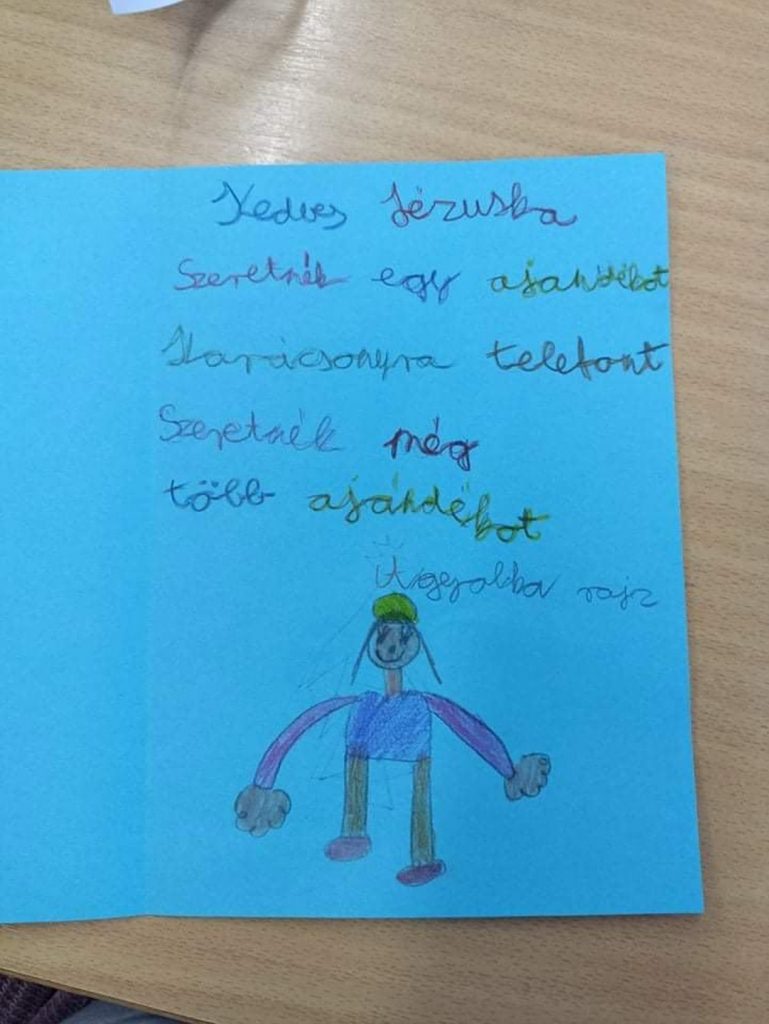 Kedves Jézuska
Szeretnék egy ajándékot
Karácsonyra telefont
Szeretnék még
több ajándékot
rajz